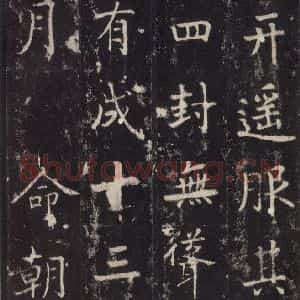 开遥服其
四封無聳
有成十三
月命朝
Shufawang.CN